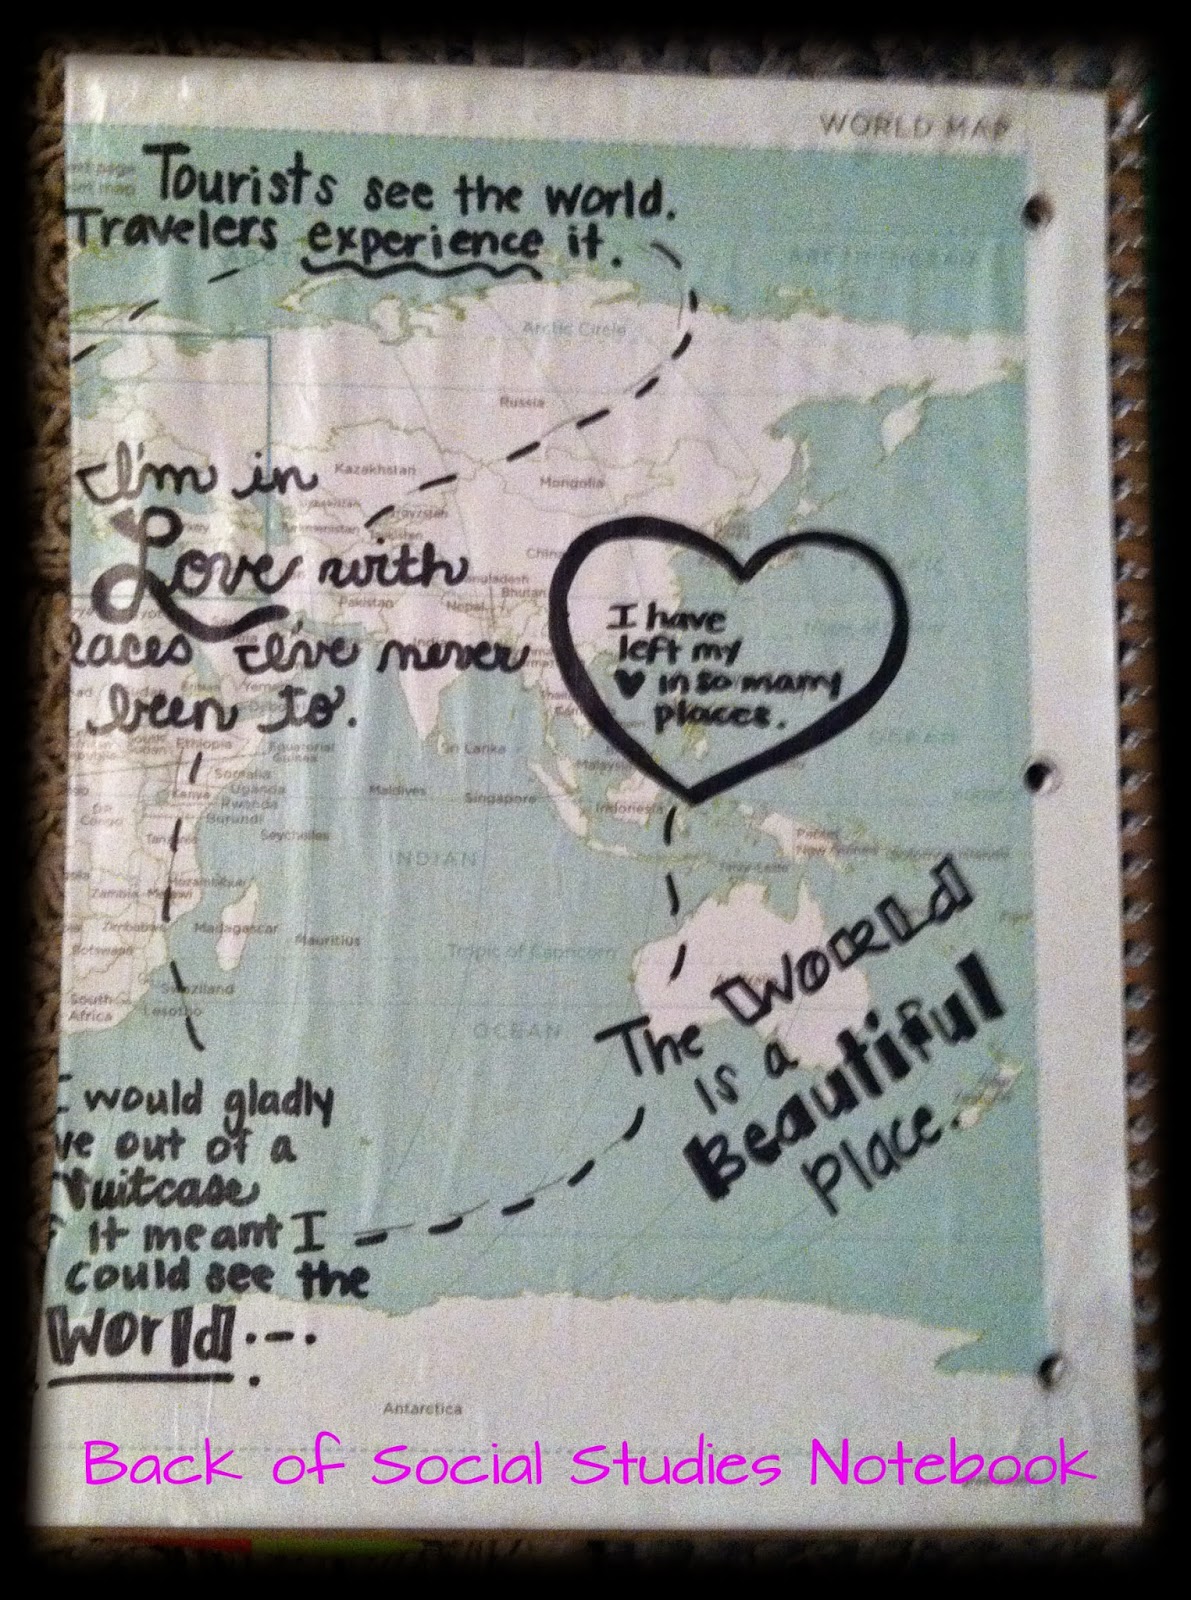 WORLD MAP
Tourists see the world.
Travelers experience it.
Arctic Circle
Russia
I'm in
Love with
laces I've never
been to.
Kazakhstan
Mongolia
China
Bhutan
Pakistan
Nepal
I have
left my
♥ in so many
places.
Ethiopia
Equatorial
Guinea
Somalia
Kenya
Uganda
Rwanda
Burundi
Seychelles
Sri Lanka
Maldives
Singapore
Malaysia
Indonesia
Papua
New Guinea
Solomon Islands
Timor-Leste
INDIAN
OCEAN
Congo
Zambia
Malawi
Mozambique
Zimbabwe
Madagascar
Mauritius
Botswana
Tropic of Capricorn
Swaziland
South
Africa
Lesotho
OCEAN
The World
is a
Beautiful
Place.
I would gladly
ve out of a
Suitcase
it meant I
could see the
World.--.
Antarctica
Back of Social Studies Notebook